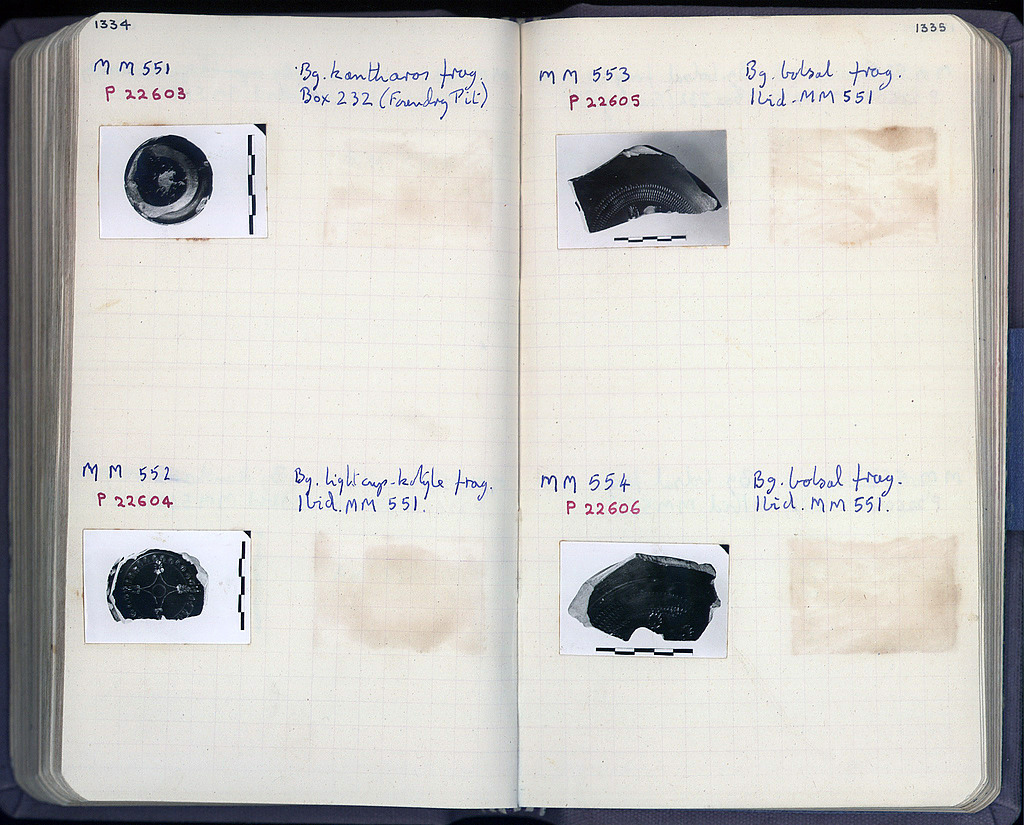 1334
MM 551
P 22603
Bg. kantharos frag.
Box 232 (Foundry Pit)
MM 552
P 22604
Bg. light cup-kotyle frag.
Ibid. MM 551.
1335
MM 553
P 22605
Bg. bolsal frag.
Ibid. MM 551
MM 554
P 22606
Bg. bolsal frag.
Ibid. MM 551.